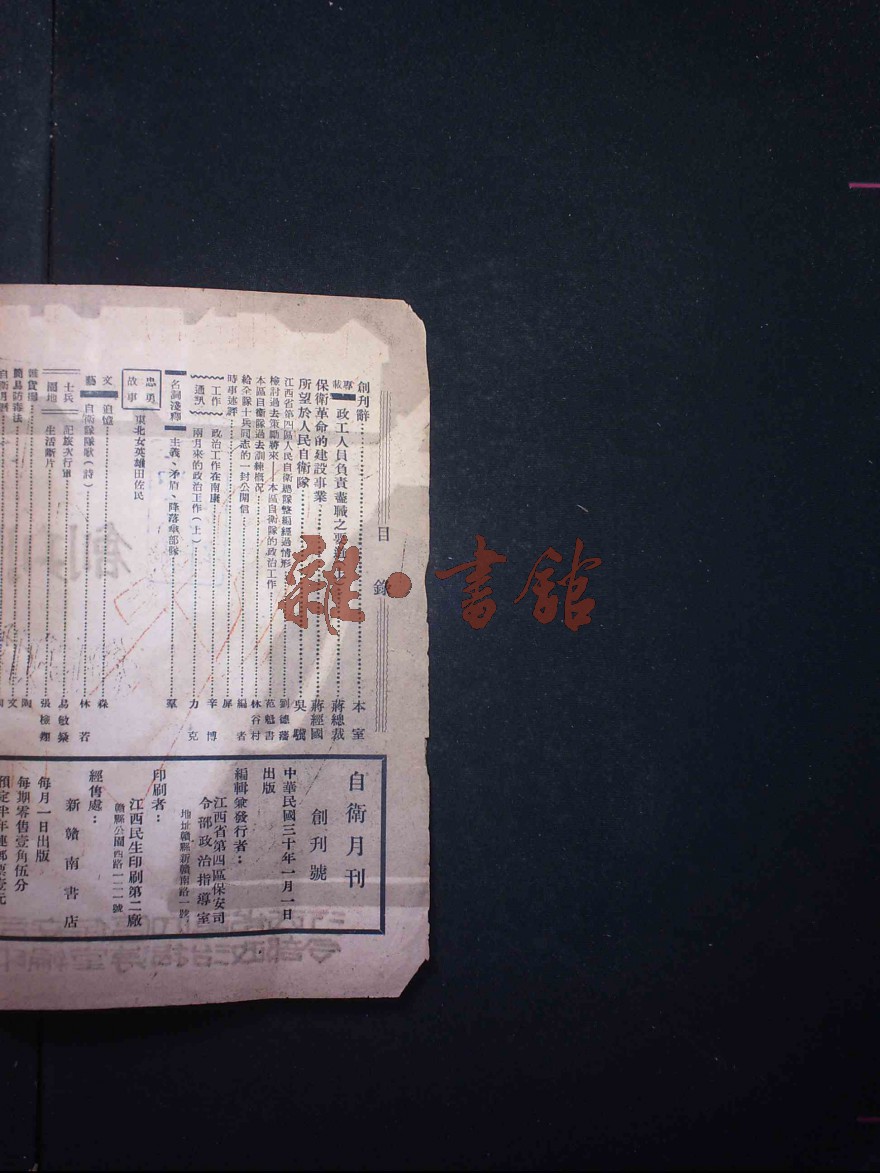 目錄
創刊辭 本室
專載 政工人員負責盡職之要 蔣總裁
保衛革命的建設事業 蔣經國
所望於人民自衛隊 吳驥
江西省第四區人民自衛總隊整編經過情形 劉德藩
檢討過去策勵將來——本區自衛隊的政治工作 范魁書
本區自衛隊過去訓練概況 林谷村
給全隊士兵同志的一封公開信 編者
時事述評 屏
工作通訊 政治工作在南康 辛博
兩月來的政治工作(上) 力克
名詞淺釋 主義、矛盾、降落傘部隊 羣
忠勇故事 東北女英雄田佐民
文藝 追憶 森
自衛隊隊歌(詩) 林若
士兵園地 記一次行軍 易敏燊
生活斷片 張檢翹
雜貨攤 陶
簡易防毒法 文
自衛月刊
創刊號
中華民國三十年一月一日
出版
編輯兼發行者:
江西省第四區保安司
令部政治指導室
地址贛縣新贛南路一號
印刷者:
江西民生印刷第二廠
贛縣公園西路一二一號
經售處:
新贛南書店
每月一日出版
每期零售壹角伍分
預定半年連郵票壹元
雜·書館